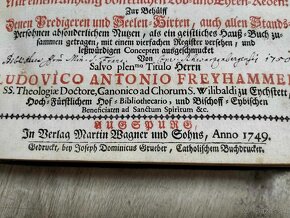 Zur Behülff
Jenen Predigeren und Seelen-Hirten, auch allen Stands-
Persohnen absonderlichem Nutzen, als ein geistliches Hauß-Buch zu-
sammen getragen, mit einem vierfachen Register versehen, und
lesswürdigen Concepten außgeschmucket
Von
Salvo pleno Titulo Herrn
LUDOVICO ANTONIO FREYHAMMER
SS. Theologiæ Doctore, Canonico ad Chorum S. Wilibaldi zu Eychstett,
Hoch-Fürstlichem Hof-Bibliothecario, und Bischoff-Eybischen
Beneficiaten ad Sanctum Spiritum &c.
AUGSPURG,
In Verlag Martin Wagner und Sohns, Anno 1749.
Gedruckt, bey Joseph Dominicus Grueber, Catholischem Buchdrucker.